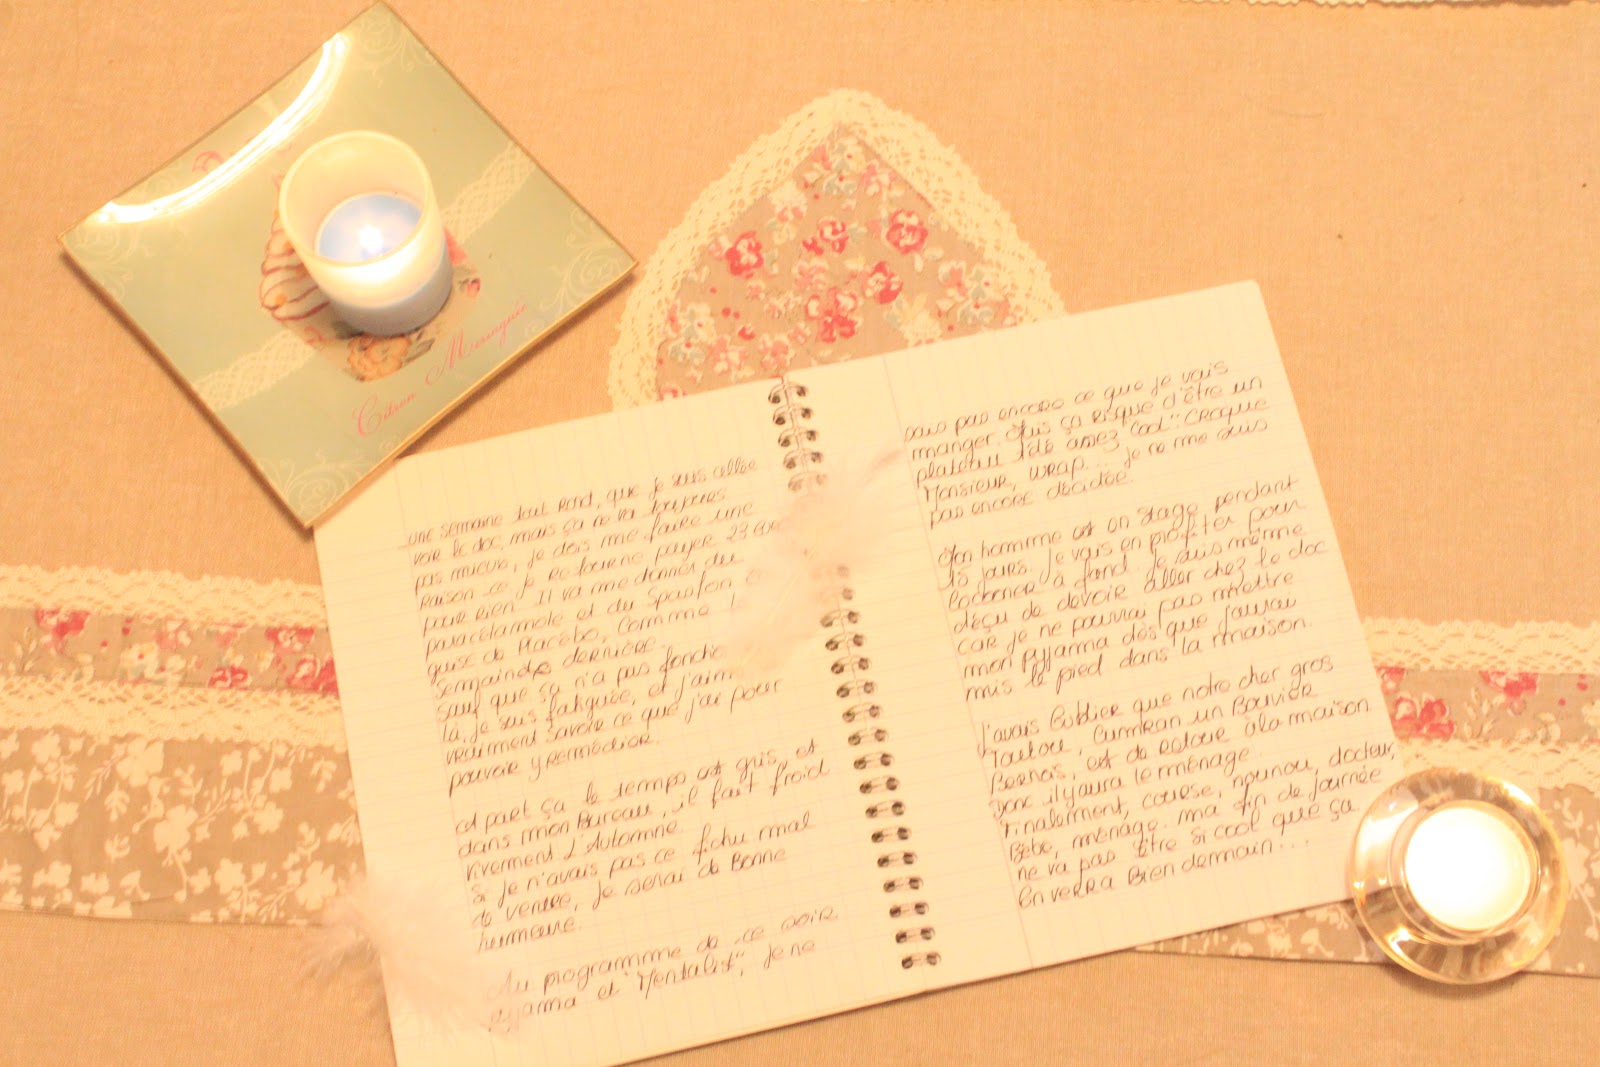 Citron Meringuée
une semaine tout rond, que je suis allée
voir le doc, mais ça ne va toujours
pas mieux, je dois me faire une
raison ce je retourne payer 23 euro
pour rien. Il va me donner du
paracétamole et du Spasfon
guise de Placébo, Comme
semaines dernière.
Sauf que ça n'a pas fonctio
là, je suis fatiguée, et j'aim
vraiment savoir ce que j'ai pour
pouvoir y remédier.
à part ça le temps est gris, et
dans mon Bureau, il fait froid
vivement L'Automne.
Si je n'avais pas ce fichu mal
de ventre, je serai de Bonne
humeure.
Au programme de ce soir
pyjama et "Mentalist", je ne
sais pas encore ce que je vais
manger. Mais ça risque d'être un
plateau télé assez "cool". Croque
Monsieur, wrap... je ne me suis
pas encore décidée.
Mon homme est en stage pendant
15 jours. Je vais en profiter pour
Cocooner à fond. Je suis même
déçu de devoir aller chez le doc
car je ne pourrai pas mettre
mon pyjama dès que j'aurai
mis le pied dans la maison.
J'avais oublier que notre cher gros
Toutou, un Bouvier
Bernois, est de retour à la maison
Donc il y aura le ménage.
Finalement, course, nounou, docteur,
Bébé, ménage. ma fin de journée
ne va pas être si cool que ça
On verra Bien demain...